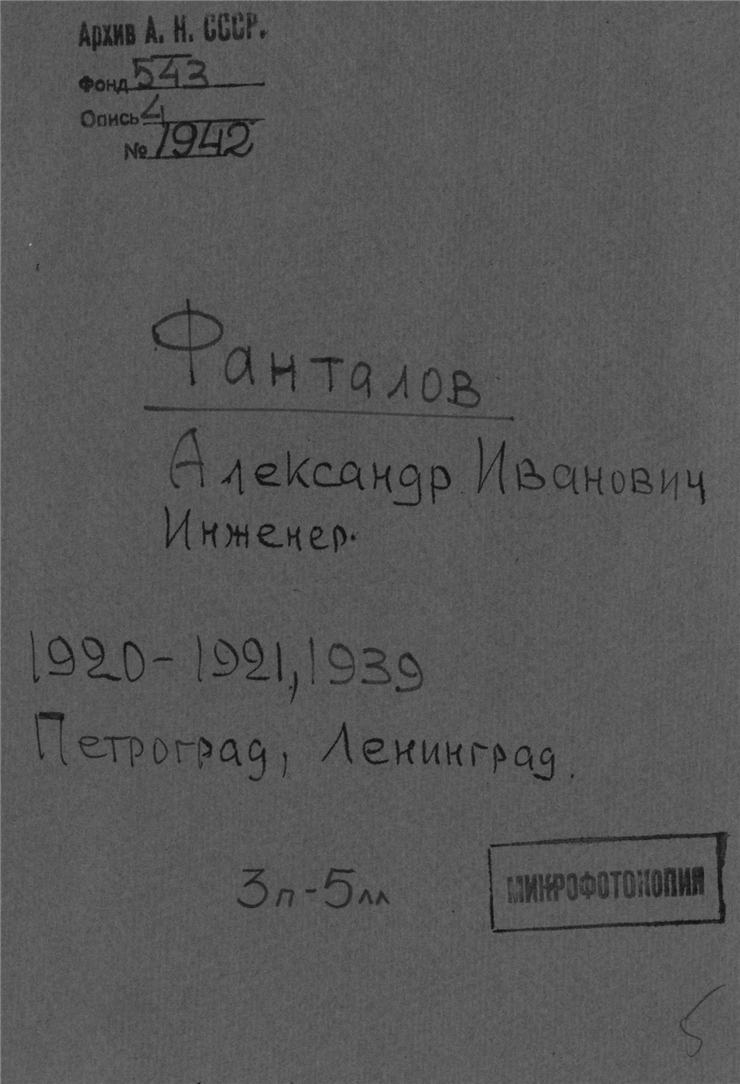 Архив А. Н. СССР.
Фонд 543
Опись 4
№ 1942
Фанталов
Александр Иванович
Инженер.
1920-1921, 1939
Петроград, Ленинград.
3п-5лл
МИКРОФОТОКОПИЯ
5